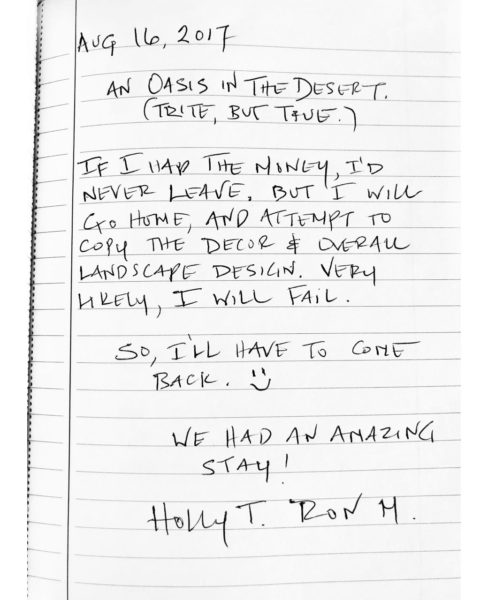 AUG 16, 2017
AN OASIS IN THE DESERT.
(TRITE, BUT TRUE.)
IF I HAD THE MONEY, I'D
NEVER LEAVE. BUT I WILL
GO HOME, AND ATTEMPT TO
COPY THE DECOR & OVERALL
LANDSCAPE DESIGN. VERY
LIKELY, I WILL FAIL.
SO, I'LL HAVE TO COME
BACK. :)
WE HAD AN AMAZING
STAY!
HOLLY T. RON M.